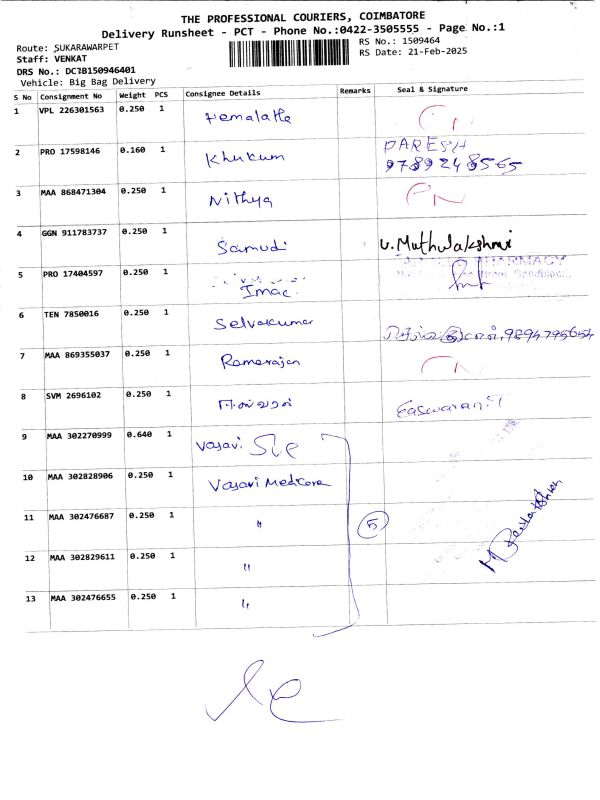 THE PROFESSIONAL COURIERS, COIMBATORE
Delivery Runsheet - PCT - Phone No.:0422-3505555 - Page No.:1
Route: SUKARAWARPET
RS No.: 1509464
Staff: VENKAT
RS Date: 21-Feb-2025
DRS No.: DCTB150946401
Vehicle: Big Bag Delivery
S No Consignment No Weight PCS Consignee Details Remarks Seal & Signature
1 VPL 226301563 0.250 1 Hemalatha
2 PRO 17598146 0.160 1 Khukum PARESH
9789248565
3 MAA 868471304 0.250 1 Nithya
4 GGN 911783737 0.250 1 Samudi V. Muthulakshmi
5 PRO 17404597 0.250 1 Imac PHARMACY
6 TEN 7850016 0.250 1 Selvakumar 9894795654
7 MAA 869355037 0.250 1 Ramarajan
8 SVM 2696102 0.250 1 ஈஸ்வரன் Easwaran
9 MAA 302270999 0.640 1 Vasavi
10 MAA 302828906 0.250 1 Vasavi Medicare
11 MAA 302476687 0.250 1 " 5
12 MAA 302829611 0.250 1 "
13 MAA 302476655 0.250 1 "